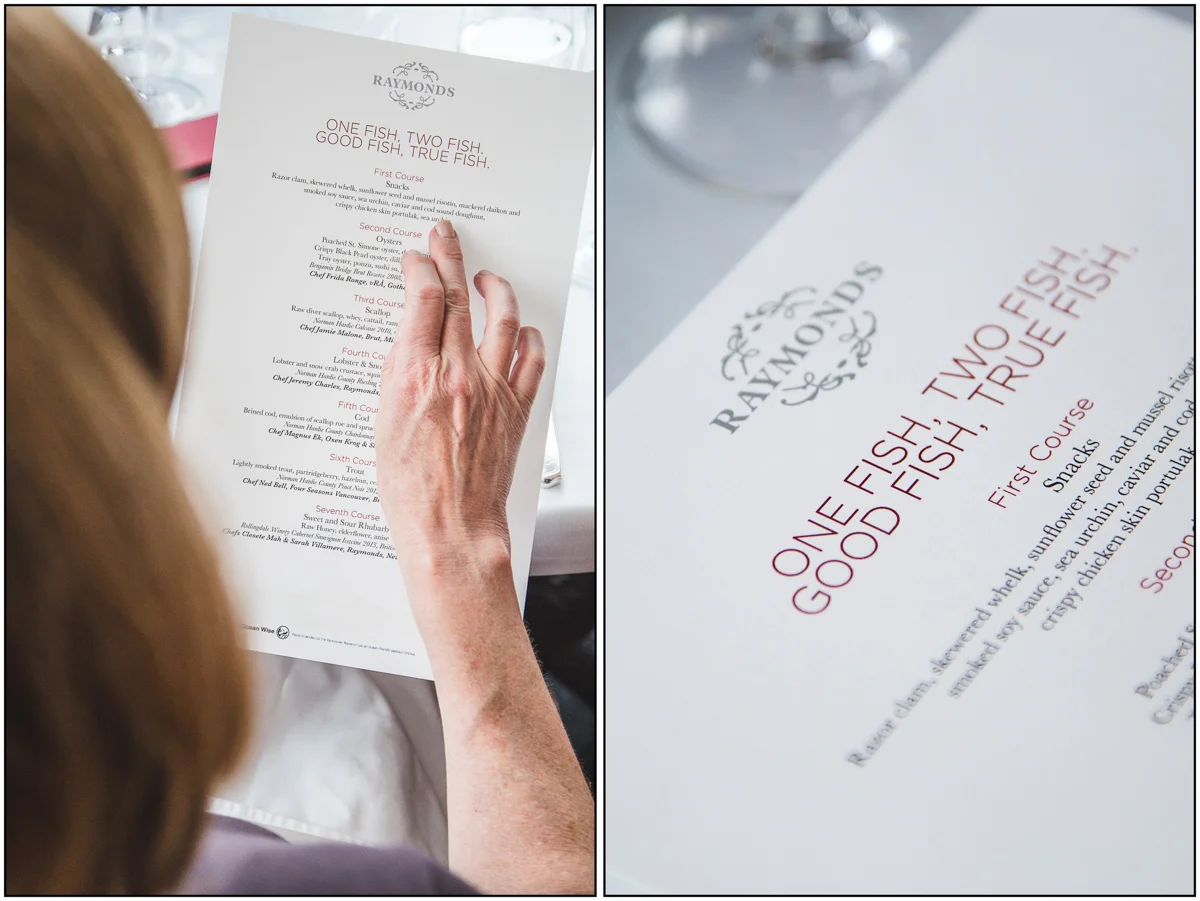 RAYMONDS
ONE FISH, TWO FISH.
GOOD FISH, TRUE FISH.
First Course
Snacks
Razor clam, skewered whelk, sunflower seed and mussel risotto, mackerel daikon and
smoked soy sauce, sea urchin, caviar and cod sound doughnut,
crispy chicken skin portulak, sea
Second Course
Oysters
Poached St. Simone oyster,
Crispy Black Pearl oyster,
Tray oyster, ponzu, sushi
Benjamin Bridge Brut Reserve 2008,
Chef Frida Ronge, vRÅ,
Third Course
Scallop
Raw diver scallop, whey, cattail,
Norman Hardie Calcaire 2010,
Chef Jamie Malone, Brut,
Fourth
Lobster &
Lobster and snow crab crustace,
Norman Hardie County Riesling
Chef Jeremy Charles, Raymonds,
Fifth
Cod
Brined cod, emulsion of scallop roe and
Norman Hardie County Chardonnay
Chef Magnus Ek, Oxen Krog &
Sixth
Trout
Lightly smoked trout, partridgeberry, hazelnut,
Norman Hardie County Pinot Noir
Chef Ned Bell, Four Seasons Vancouver,
Seventh Course
Sweet and Sour Rhubarb
Raw Honey, elderflower, anise
Rollingdale Winery Cabernet Sauvignon Icewine 2013,
Chefs Celeste Mah & Sarah Villamere, Raymonds,
Wise
RAYMONDS
ONE FISH, TWO FISH.
GOOD FISH, TRUE FISH.
First Course
Snacks
Razor clam, skewered whelk, sunflower seed and mussel
smoked soy sauce, sea urchin, caviar and cod
crispy chicken skin portulak
Secon
Poached